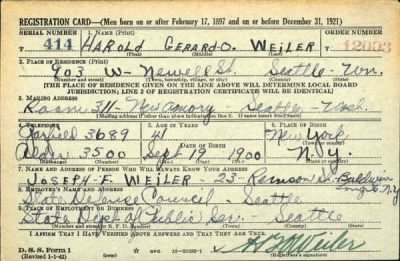 REGISTRATION CARD—(Men born on or after February 17, 1897 and on or before December 31, 1921)
SERIAL NUMBER 1. NAME (Print) ORDER NUMBER
414 HAROLD GERARD O. WEILER 12003
2. PLACE OF RESIDENCE (Print)
903 W- Newell St. Seattle - Wn.
(Number and street) (Town, township, village, or city) (County) (State)
[THE PLACE OF RESIDENCE GIVEN ON THE LINE ABOVE WILL DETERMINE LOCAL BOARD
JURISDICTION; LINE 2 OF REGISTRATION CERTIFICATE WILL BE IDENTICAL]
3. MAILING ADDRESS
Room 311 - New Armory Seattle - Wash.
[Mailing address if other than place indicated on line 2. If same insert word same]
4. TELEPHONE 5. AGE IN YEARS 6. PLACE OF BIRTH
Garfield 3639 41 New York
DATE OF BIRTH
3500 Sept 19 1900 N.Y.
7. NAME AND ADDRESS OF PERSON WHO WILL ALWAYS KNOW YOUR ADDRESS
JOSEPH-F. WEILER - 23 St. Baldwin
N.Y.
8. EMPLOYER'S NAME AND ADDRESS
State Defense Council - Seattle
9. PLACE OF EMPLOYMENT OR BUSINESS
State Dept of Public Ser. - Seattle
I AFFIRM THAT I HAVE VERIFIED ABOVE ANSWERS AND THAT THEY ARE TRUE.
D. S. S. Form 1
(Revised 1-1-42)
Weiler